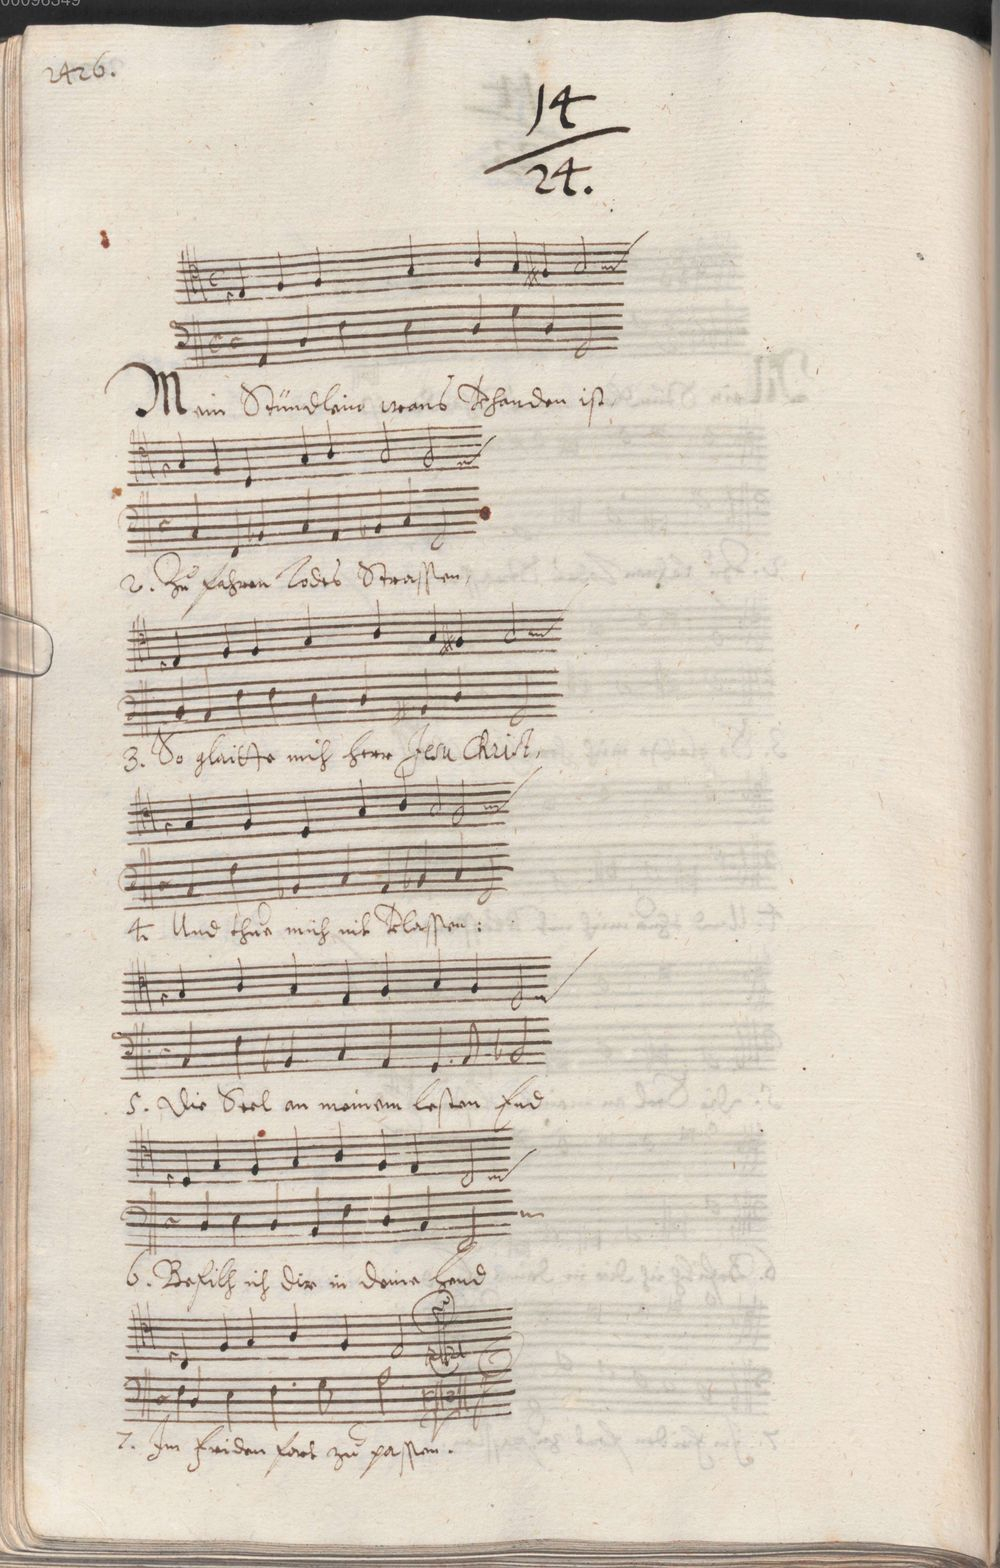 00096349
2426.
14
24.
Mein Stündlein wans Vhanden ist
2. Zu fahren todes Strassen,
3. So glaitte mich herr Jesu Christ,
4. Und thue mich nit Vlassen:
5. Die Seel an meinem lesten End
6. Befilh ich dir in deine hend
7. Im friden fort zu passen.